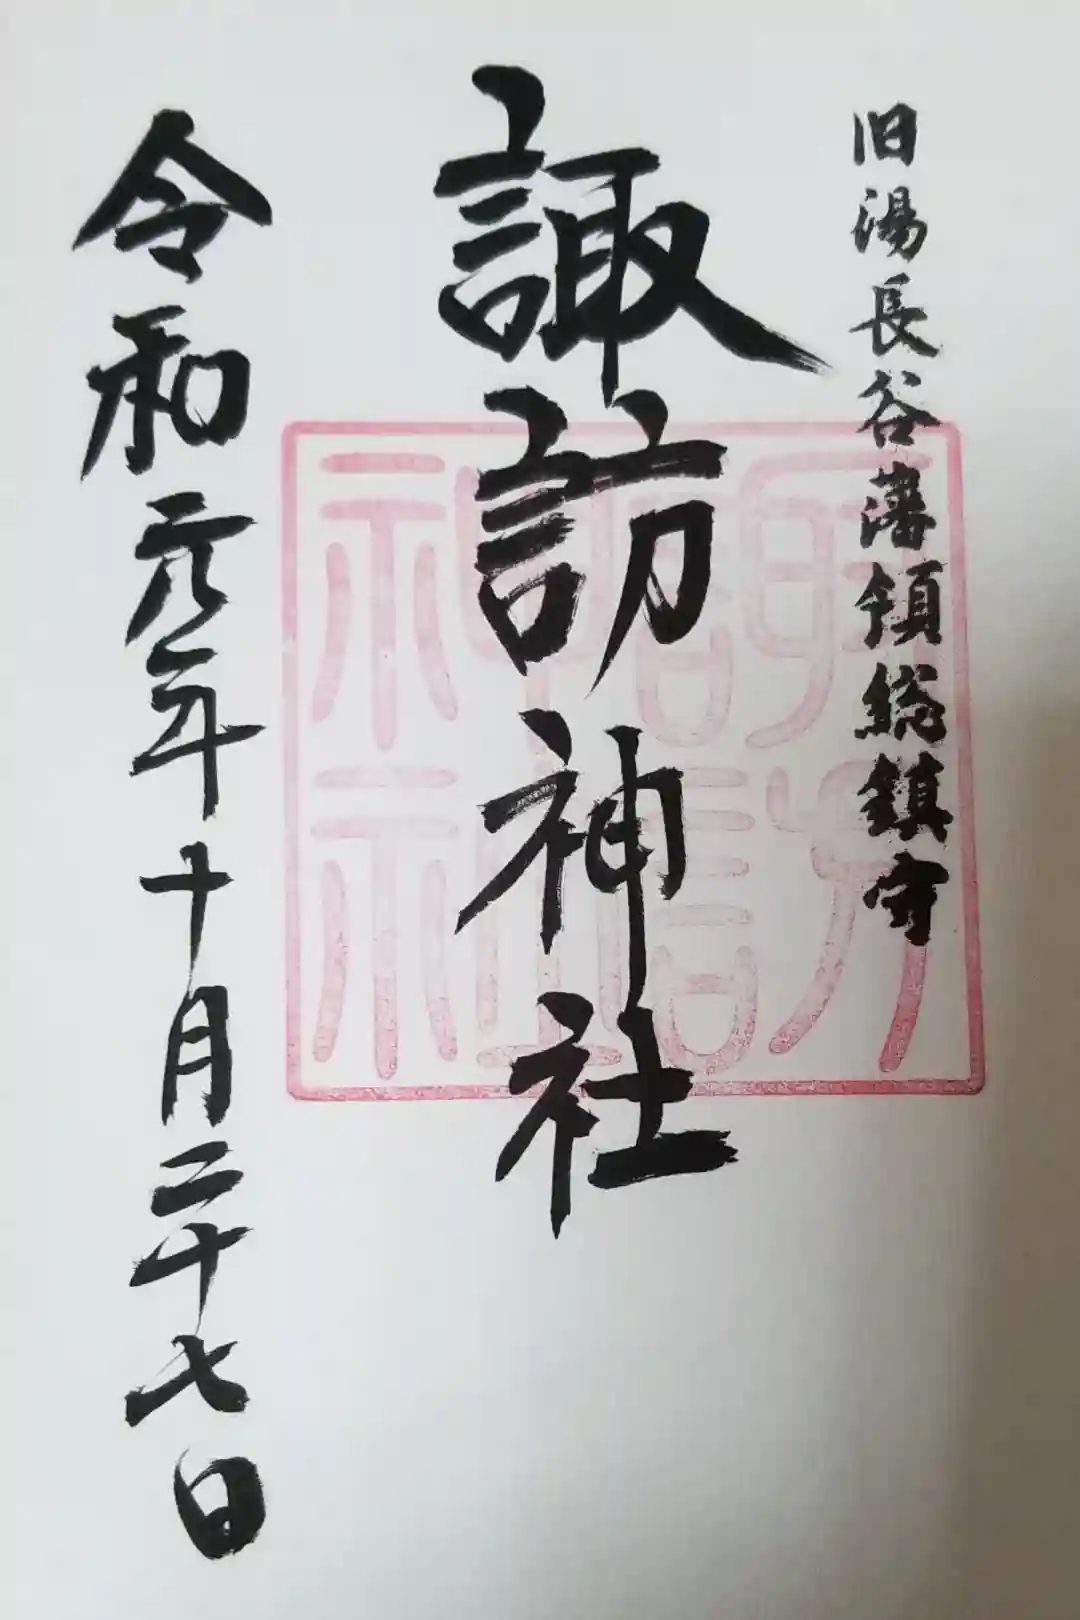 旧湯長谷藩領総鎮守
諏訪神社
諏訪
神社
令和元年十月二十七日